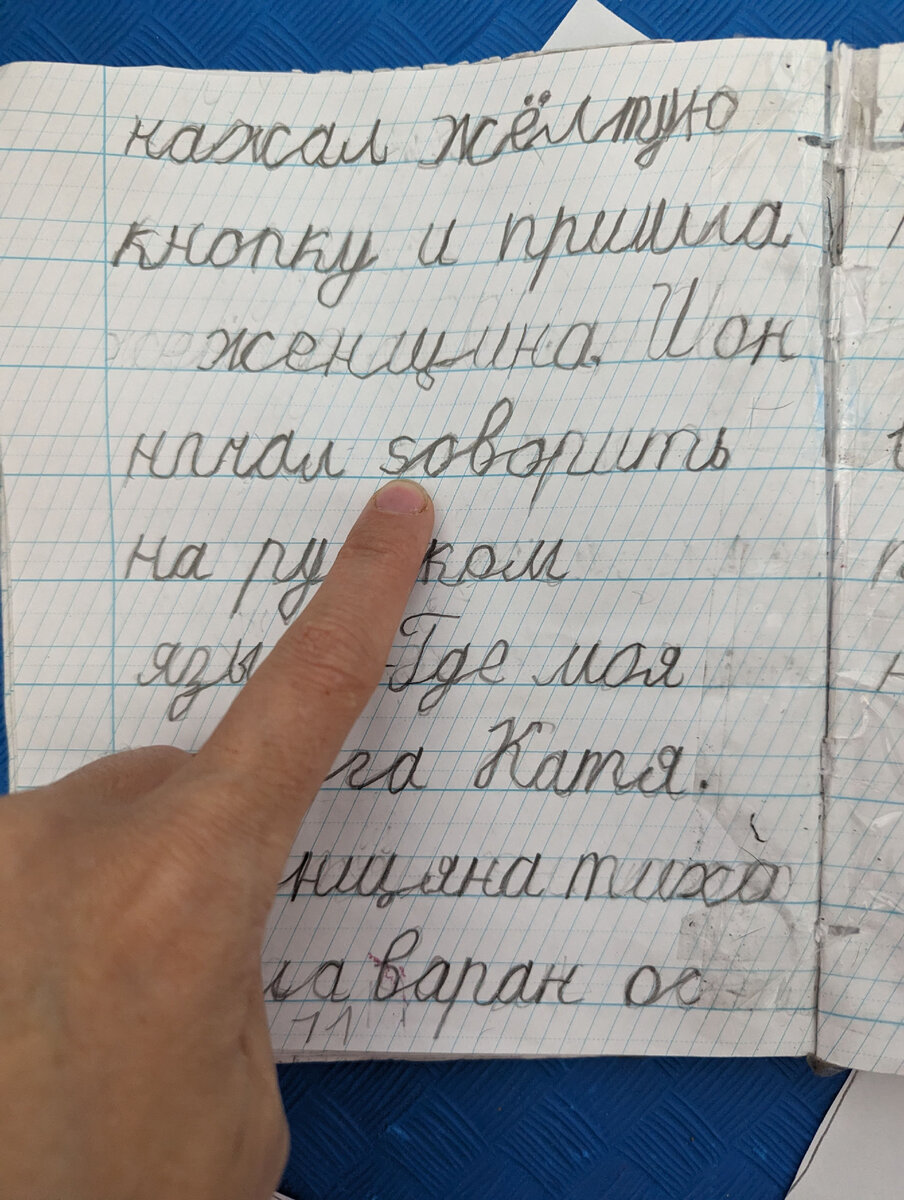 нажал жёлтую
кнопку и пришла
женщина. И он
начал говорить
на ком
язы Где моя
га Катя.
нщяна тихо
ла варан ос
11